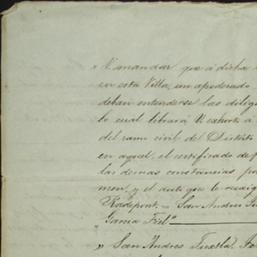 " Mandar que á dicha
en esta Villa, un apoderado
deban entenderse las dilig
lo cual librará exhorto á
del ramo civil del Distrito
en aquel, el certificado de
las demas constancias
men, y el auto que
Rodepont. - San Andres
Garcia Frel°
" San Andres Tuxtla.